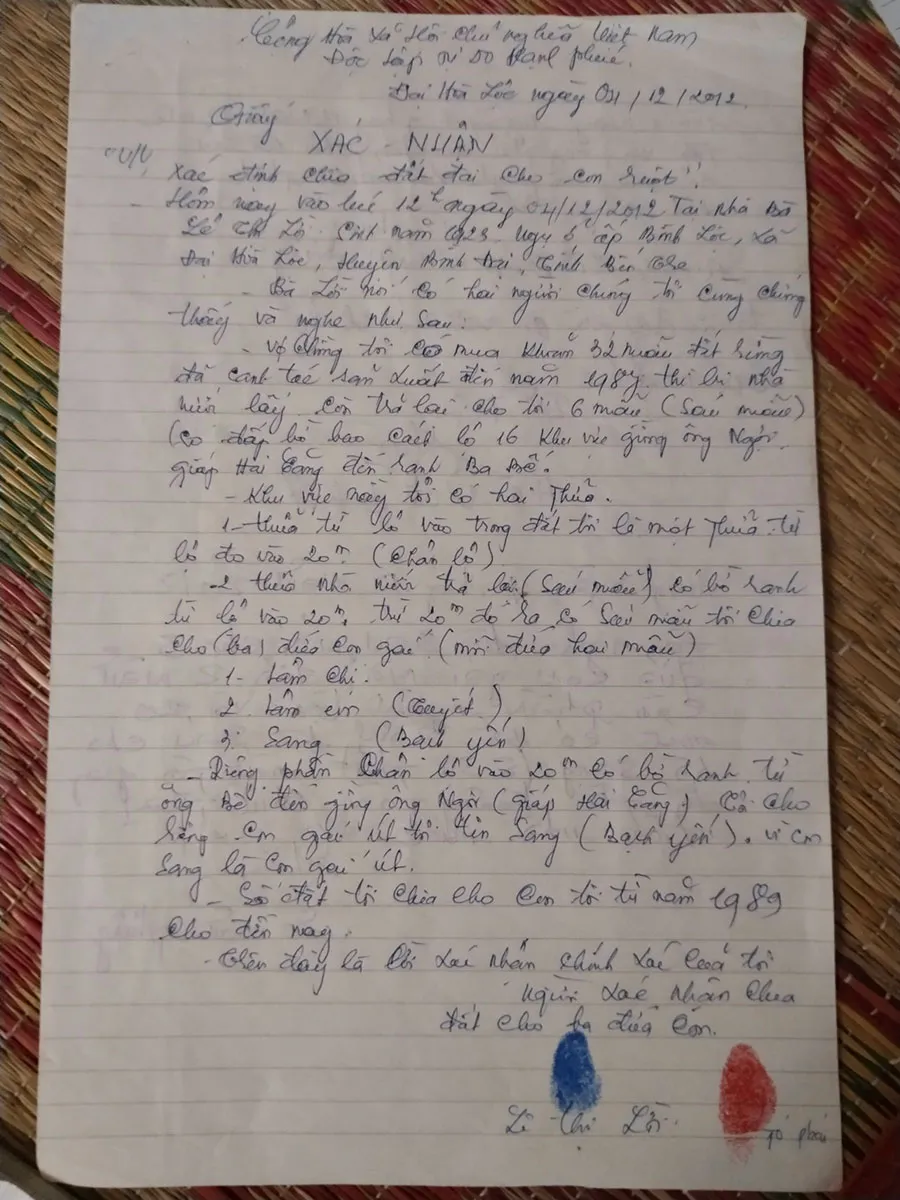 Cộng Hòa Xã Hội Chủ nghĩa Việt Nam
Độc lập Tự Do Hạnh phúc
Đại Hòa Lộc ngày 04/12/2012
Giấy
XÁC - NHẬN
"V/V
Xác định chia đất đai cho con ruột".
- Hôm nay vào lúc 12h ngày 04/12/2012 Tại Nhà Bà
Lê Thị Lời Sinh năm 1923. Ngụ ấp Bình Lộc, Xã
Đại Hòa Lộc, Huyện Bình Đại, Tỉnh Bến Tre
- Bà Lời nói có hai người chúng tôi cùng chứng
thấy và nghe như sau:
- Vợ chồng tôi có mua khoản 32 mẫu đất rừng
đã canh tác sản xuất đến năm 1987 thì bị nhà
nước lấy còn trả lại cho tôi 6 mẫu (Sáu mẫu)
(Có đắp bờ bao cách lộ 16 khu vực giồng ông Ngời
giáp Hai Căng đến ranh Ba Bé.
- Khu vực này tôi có hai Thửa.
1- thửa từ lộ vào trong đất tôi là một Thửa từ
lộ đo vào 20m (Chân lộ)
-2 thửa nhà nước trả lại (Sáu mẫu) có bờ ranh
từ lộ vào 20m, trừ 20m đó ra có Sáu mẫu tôi chia
cho (ba) đứa con gái (mỗi đứa hai mẫu)
1- Lâm Chị.
2 Lâm em (Tuyết)
3. Sang (Bạch yến)
- Riêng phần Chân lộ vào 20m có bờ ranh từ
ông Bé đến giồng ông Ngời (giáp Hai Căng) Tôi cho
riêng con gái út tôi tên Sang (Bạch yến). vì con
Sang là con gái út.
- Số đất tôi chia cho con tôi từ năm 1989
cho đến nay.
- Trên đây là lời xác nhận chính xác của tôi
Người xác nhận chia
đất cho ba đứa con.
Lê Thị Lời